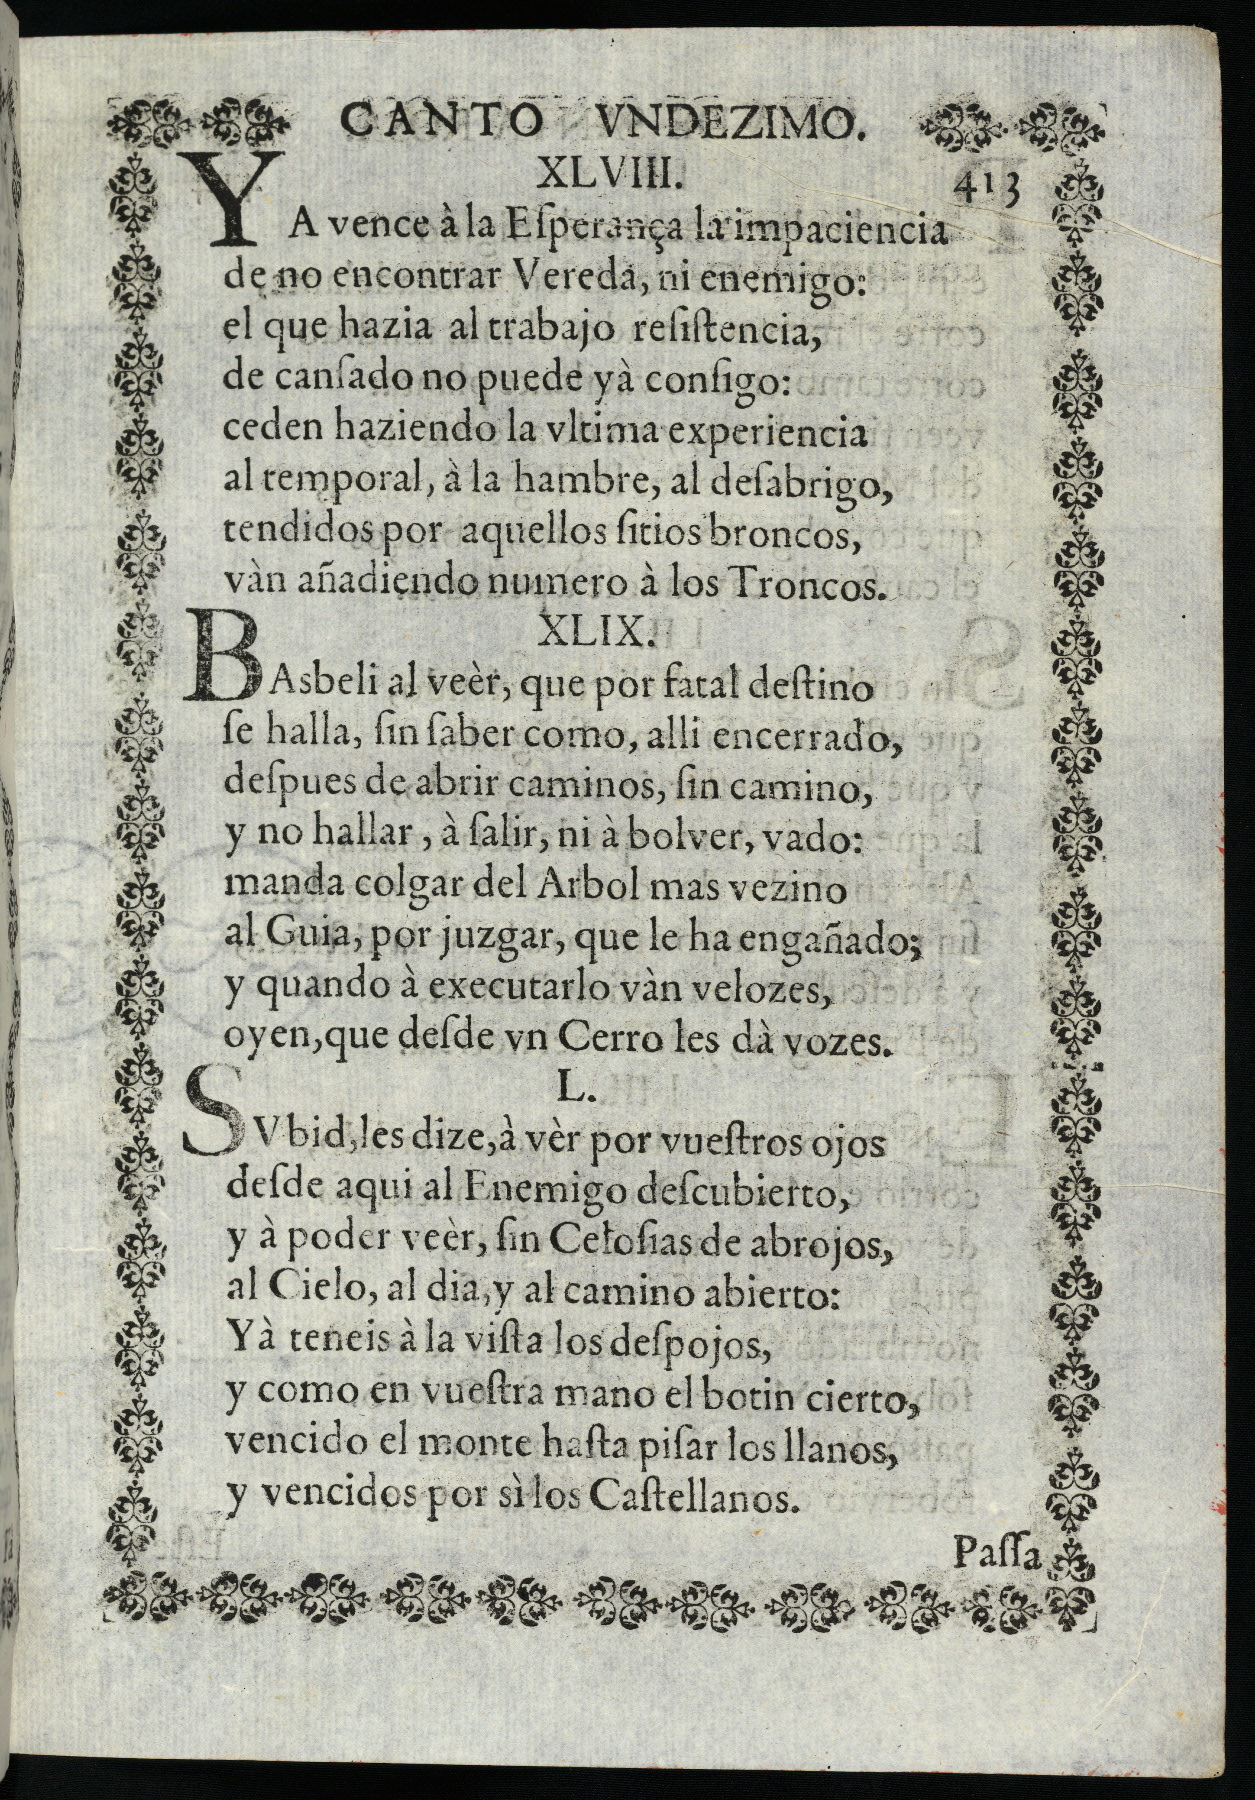 CANTO VNDEZIMO.
XLVIII.
413
YA vence à la Eſperança la impaciencia
de no encontrar Vereda, ni enemigo:
el que hazia al trabajo reſiſtencia,
de canſado no puede yà conſigo:
ceden haziendo la vltima experiencia
al temporal, à la hambre, al deſabrigo,
tendidos por aquellos ſitios broncos,
vàn añadiendo numero à los Troncos.
XLIX.
BAsbeli al veèr, que por fatal deſtino
ſe halla, ſin ſaber como, alli encerrado,
deſpues de abrir caminos, ſin camino,
y no hallar, à ſalir, ni à bolver, vado:
manda colgar del Arbol mas vezino
al Guia, por juzgar, que le ha engañado;
y quando à executarlo vàn velozes,
oyen, que deſde vn Cerro les dà vozes.
L.
SVbid, les dize, à vèr por vueſtros ojos
deſde aqui al Enemigo deſcubierto,
y à poder veèr, ſin Celoſias de abrojos,
al Cielo, al dia, y al camino abierto:
Yà teneis à la viſta los deſpojos,
y como en vueſtra mano el botin cierto,
vencido el monte haſta piſar los llanos,
y vencidos por sì los Caſtellanos.
Paſſa